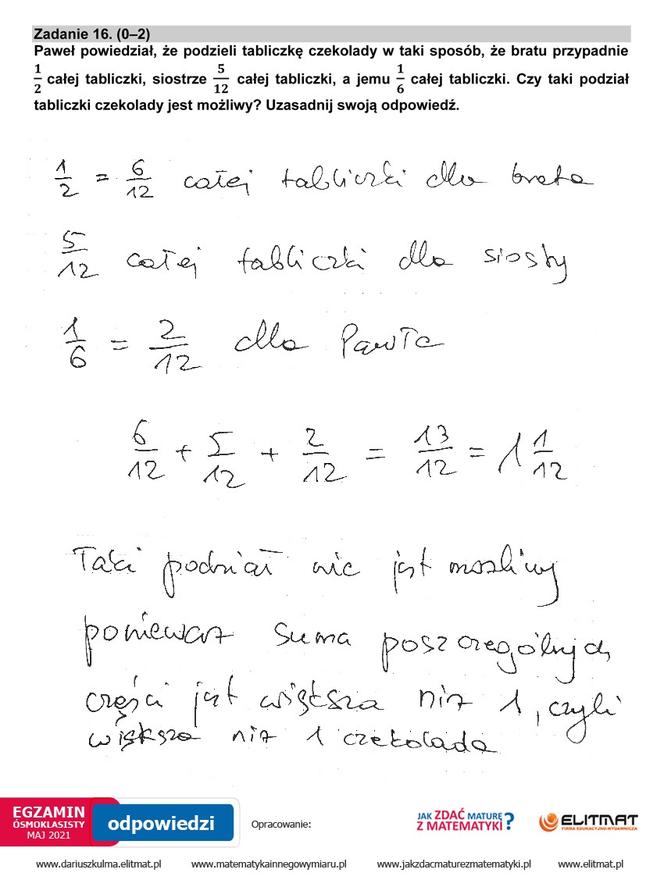 Zadanie 16. (0–2)
Paweł powiedział, że podzieli tabliczkę czekolady w taki sposób, że bratu przypadnie
1/2 całej tabliczki, siostrze 5/12 całej tabliczki, a jemu 1/6 całej tabliczki. Czy taki podział
tabliczki czekolady jest możliwy? Uzasadnij swoją odpowiedź.
1/2 = 6/12 całej tabliczki dla brata
5/12 całej tabliczki dla siostry
1/6 = 2/12 dla Pawła
6/12 + 5/12 + 2/12 = 13/12 = 1 1/12
Taki podział nie jest możliwy
ponieważ suma poszczególnych
części jest większa niż 1, czyli
większa niż 1 czekolada
EGZAMIN
ÓSMOKLASISTY
MAJ 2021
odpowiedzi
Opracowanie:
JAK ZDAĆ MATURĘ
Z MATEMATYKI?
ELITMAT
FIRMA EDUKACYJNO-WYDAWNICZA
www.dariuszkulma.elitmat.pl www.matematykainnegowymiaru.pl www.jakzdacmaturezmatematyki.pl www.elitmat.pl